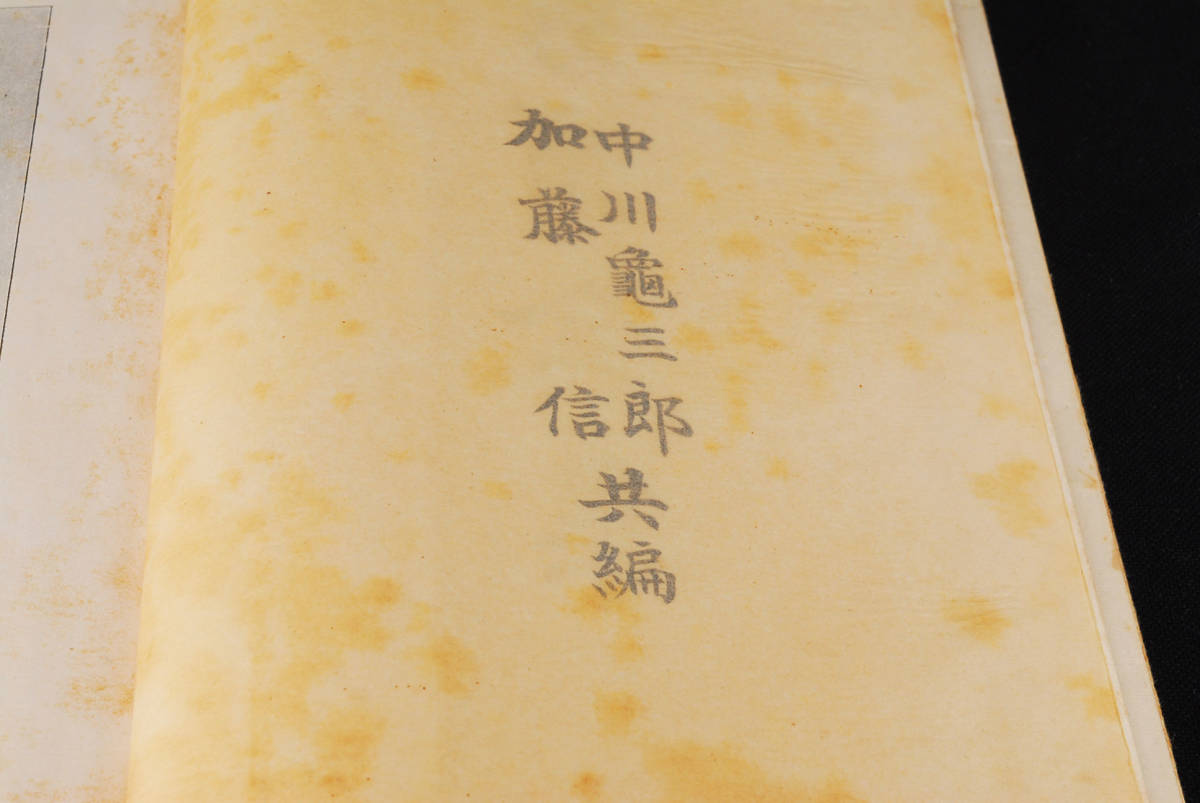 中川龜三郎
加藤信
共編